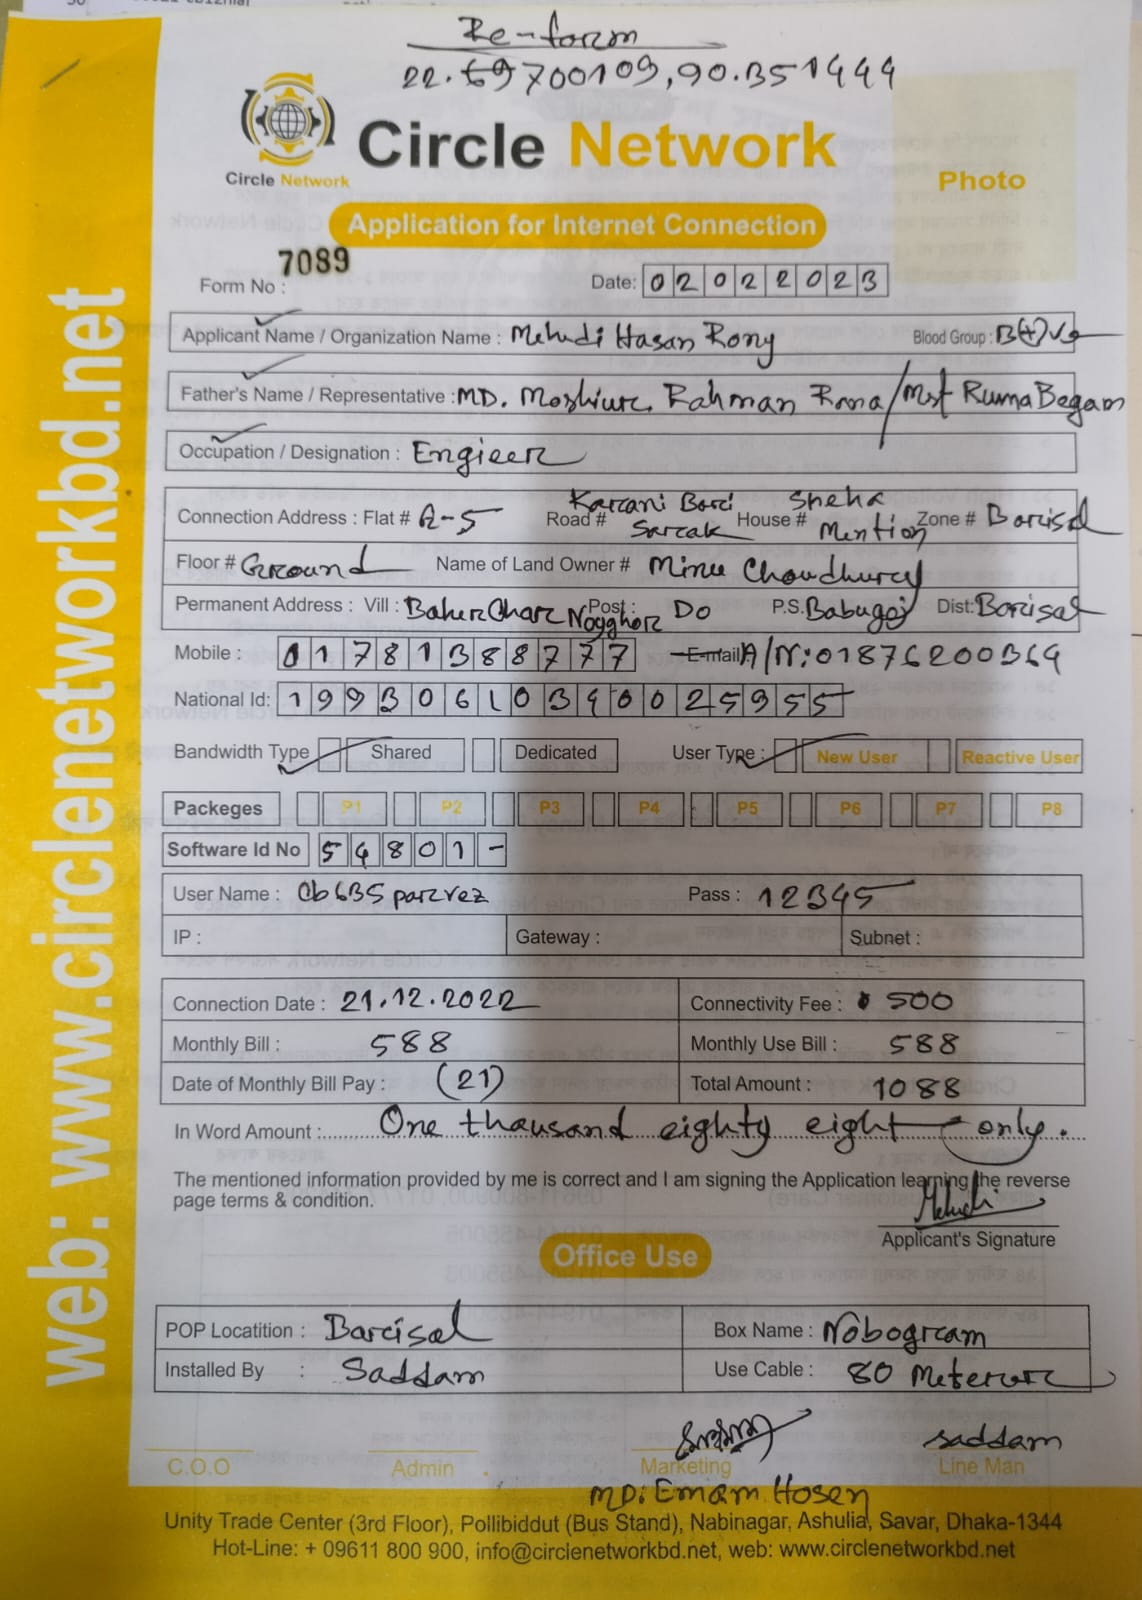 Re-form
22.69700109, 90.351444
Circle Network
Circle Network
Photo
Application for Internet Connection
7089
Form No :
Date: 02022023
Applicant Name / Organization Name : Mehedi Hasan Rony Blood Group : B(+)ve
Father's Name / Representative : MD. Moshiur Rahman Rana / Mst Ruma Begam
Occupation / Designation : Engieer
Connection Address : Flat # A-5 Road # Karani Bari Sarak House # Sneha Mention Zone # Barisal
Floor # Ground Name of Land Owner # Minu Choudhury
Permanent Address : Vill : Baher Char Post : Nogghor Do P.S. Babugoj Dist: Barisal
Mobile : 01781388777 E-mail A/N: 01876200364
National Id: 19930610340025955
Bandwidth Type Shared Dedicated User Type : New User Reactive User
Packeges P1 P2 P3 P4 P5 P6 P7 P8
Software Id No 54801-
User Name : Cb635parvez Pass : 12345
IP : Gateway : Subnet :
Connection Date : 21.12.2022 Connectivity Fee : 500
Monthly Bill : 588 Monthly Use Bill : 588
Date of Monthly Bill Pay : (21) Total Amount : 1088
In Word Amount : One thausand eighty eight only.
The mentioned information provided by me is correct and I am signing the Application learning the reverse
page terms & condition.
Mehedi
Applicant's Signature
Office Use
POP Locatition : Barisal Box Name : Nobogram
Installed By : Saddam Use Cable : 80 Meter
saddam
C.O.O Admin Marketing Line Man
MD: Emam Hosen
Unity Trade Center (3rd Floor), Pollibiddut (Bus Stand), Nabinagar, Ashulia, Savar, Dhaka-1344
Hot-Line: + 09611 800 900, info@circlenetworkbd.net, web: www.circlenetworkbd.net
web: www.circlenetworkbd.net